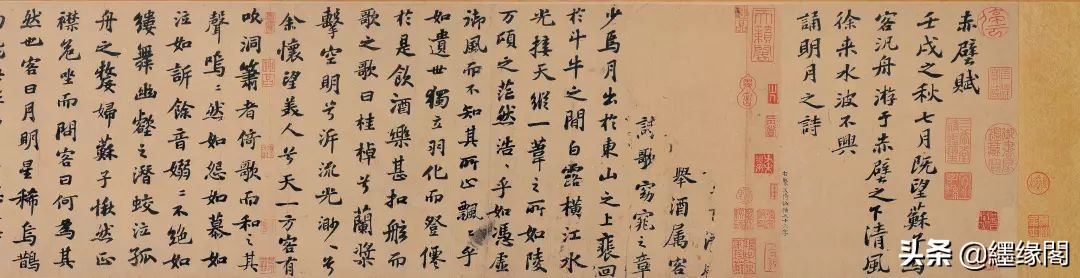 赤壁賦
壬戌之秋七月既望蘇子与
客汎舟游于赤壁之下清風
徐来水波不興
誦明月之詩
舉酒属客
歌窈窕之章
少焉月出於東山之上裵回
於斗牛之間白露橫江水
光接天縱一葦之所如陵
万頃之茫然浩〻乎如憑虛
御風而不知其所止飄〻乎
如遺世獨立羽化而登僊
於是飲酒樂甚扣舷而
歌之歌曰桂棹兮蘭槳
擊空明兮泝流光渺〻兮
余懷望美人兮天一方客有
吹洞簫者倚歌而和之其
聲嗚〻然如怨如慕如
泣如訴餘音嫋〻不絕如
縷舞幽壑之潛蛟泣孤
舟之嫠婦蘇子愀然正
襟危坐而問客曰何為其
然也客曰月明星稀烏鵲
头条 @繮缘閣